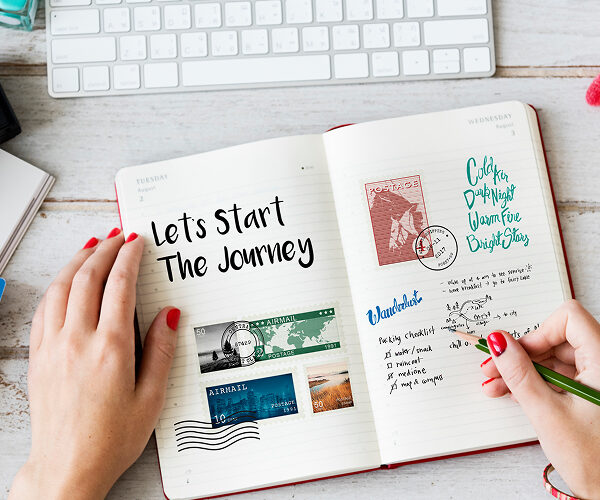 TUESDAY
August
2
Let's Start
The Journey
50
AIRMAIL
POSTAGE
1991
27620
AIRMAIL
10
POSTAGE
1991
50
WEDNESDAY
August
3
POSTAGE
Cold Air
Dark Night
Warm Fire
Bright Stars
2017
Wanderlust
Packing Checklist
water / snack
raincoat
medicine
map & compass